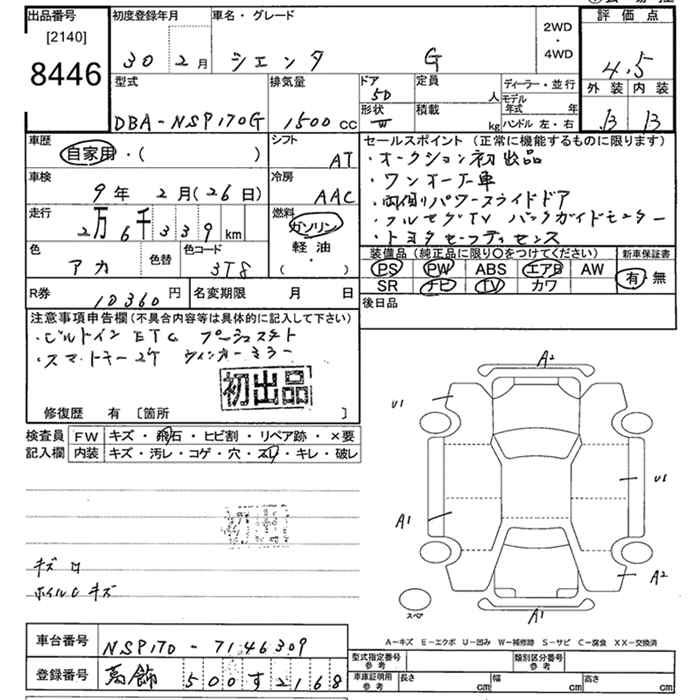 出品番号
[2140]
8446
初度登録年月
30 2月
車名・グレード
シエンタ G
2WD
・
4WD
評価点
4.5
外装 内装
B B
型式
DBA-NSP170G
排気量
1500 cc
ドア
5D
形状
定員
人
積載
kg
ディーラー・並行
モデル
年式 年
ハンドル 左・右
車歴
自家用・( )
シフト
AT
車検
9年 2月 (26日)
冷房
AAC
走行
2万6千339km
燃料
ガソリン
軽油
・
( )
色
アカ
色替
色コード
3T8
R券
10360円
名変期限 月 日
セールスポイント (正常に機能するものに限ります)
・オークション初出品
・ワンオーナー車
・両側パワースライドドア
・フルセグTV バックガイドモニター
・トヨタセーフティセンス
装備品 (純正品に限り〇をつけてください)
PS PW ABS エアB AW
SR ナビ TV カワ
新車保証書
有・無
後日品
注意事項申告欄(不具合内容等は具体的に記入して下さい)
・ビルトインETC プッシュスタート
・スマートキー2ケ ウィンカーミラー
初出品
修復歴 有 〔箇所 〕
検査員
記入欄
FW キズ・飛石・ヒビ割・リペア跡・×要
内装 キズ・汚レ・コゲ・穴・スレ・キレ・破レ
初出
キズ
ホイルキズ
A2
U1
U1
A1
A2
A1
スペア
A-キズ E-エクボ U-凹み W-補修跡 S-サビ C-腐食 XX-交換済
車台番号
NSP170-7146309
登録番号
葛飾 500す2168
型式指定番号
参考
類別区分番号
参考
車庫証明用
参考
長さ cm
幅 cm
高さ cm